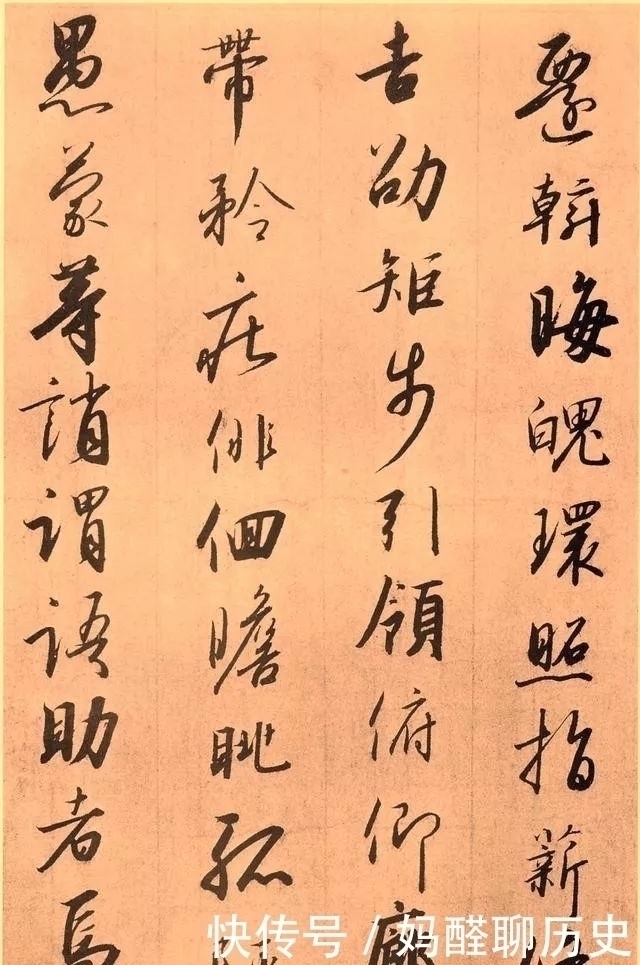 斡晦魄環照指薪
吉劭矩步引領俯仰廊
帶矜庄俳佪瞻眺孤
愚蒙等誚謂語助者焉
快传号/妈醛聊历史